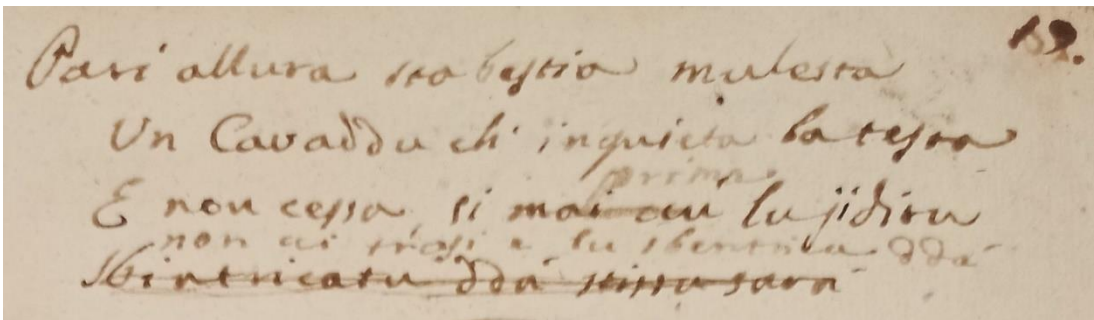 19.
Pari allura sta bestia mulesta
Un Cavaddu chi inquieta la testa
prima
E non cessa si mai cu lu jiditu
non ci trasi e lu sbentrica ddà
Sbintricatu ddà stissu sarà